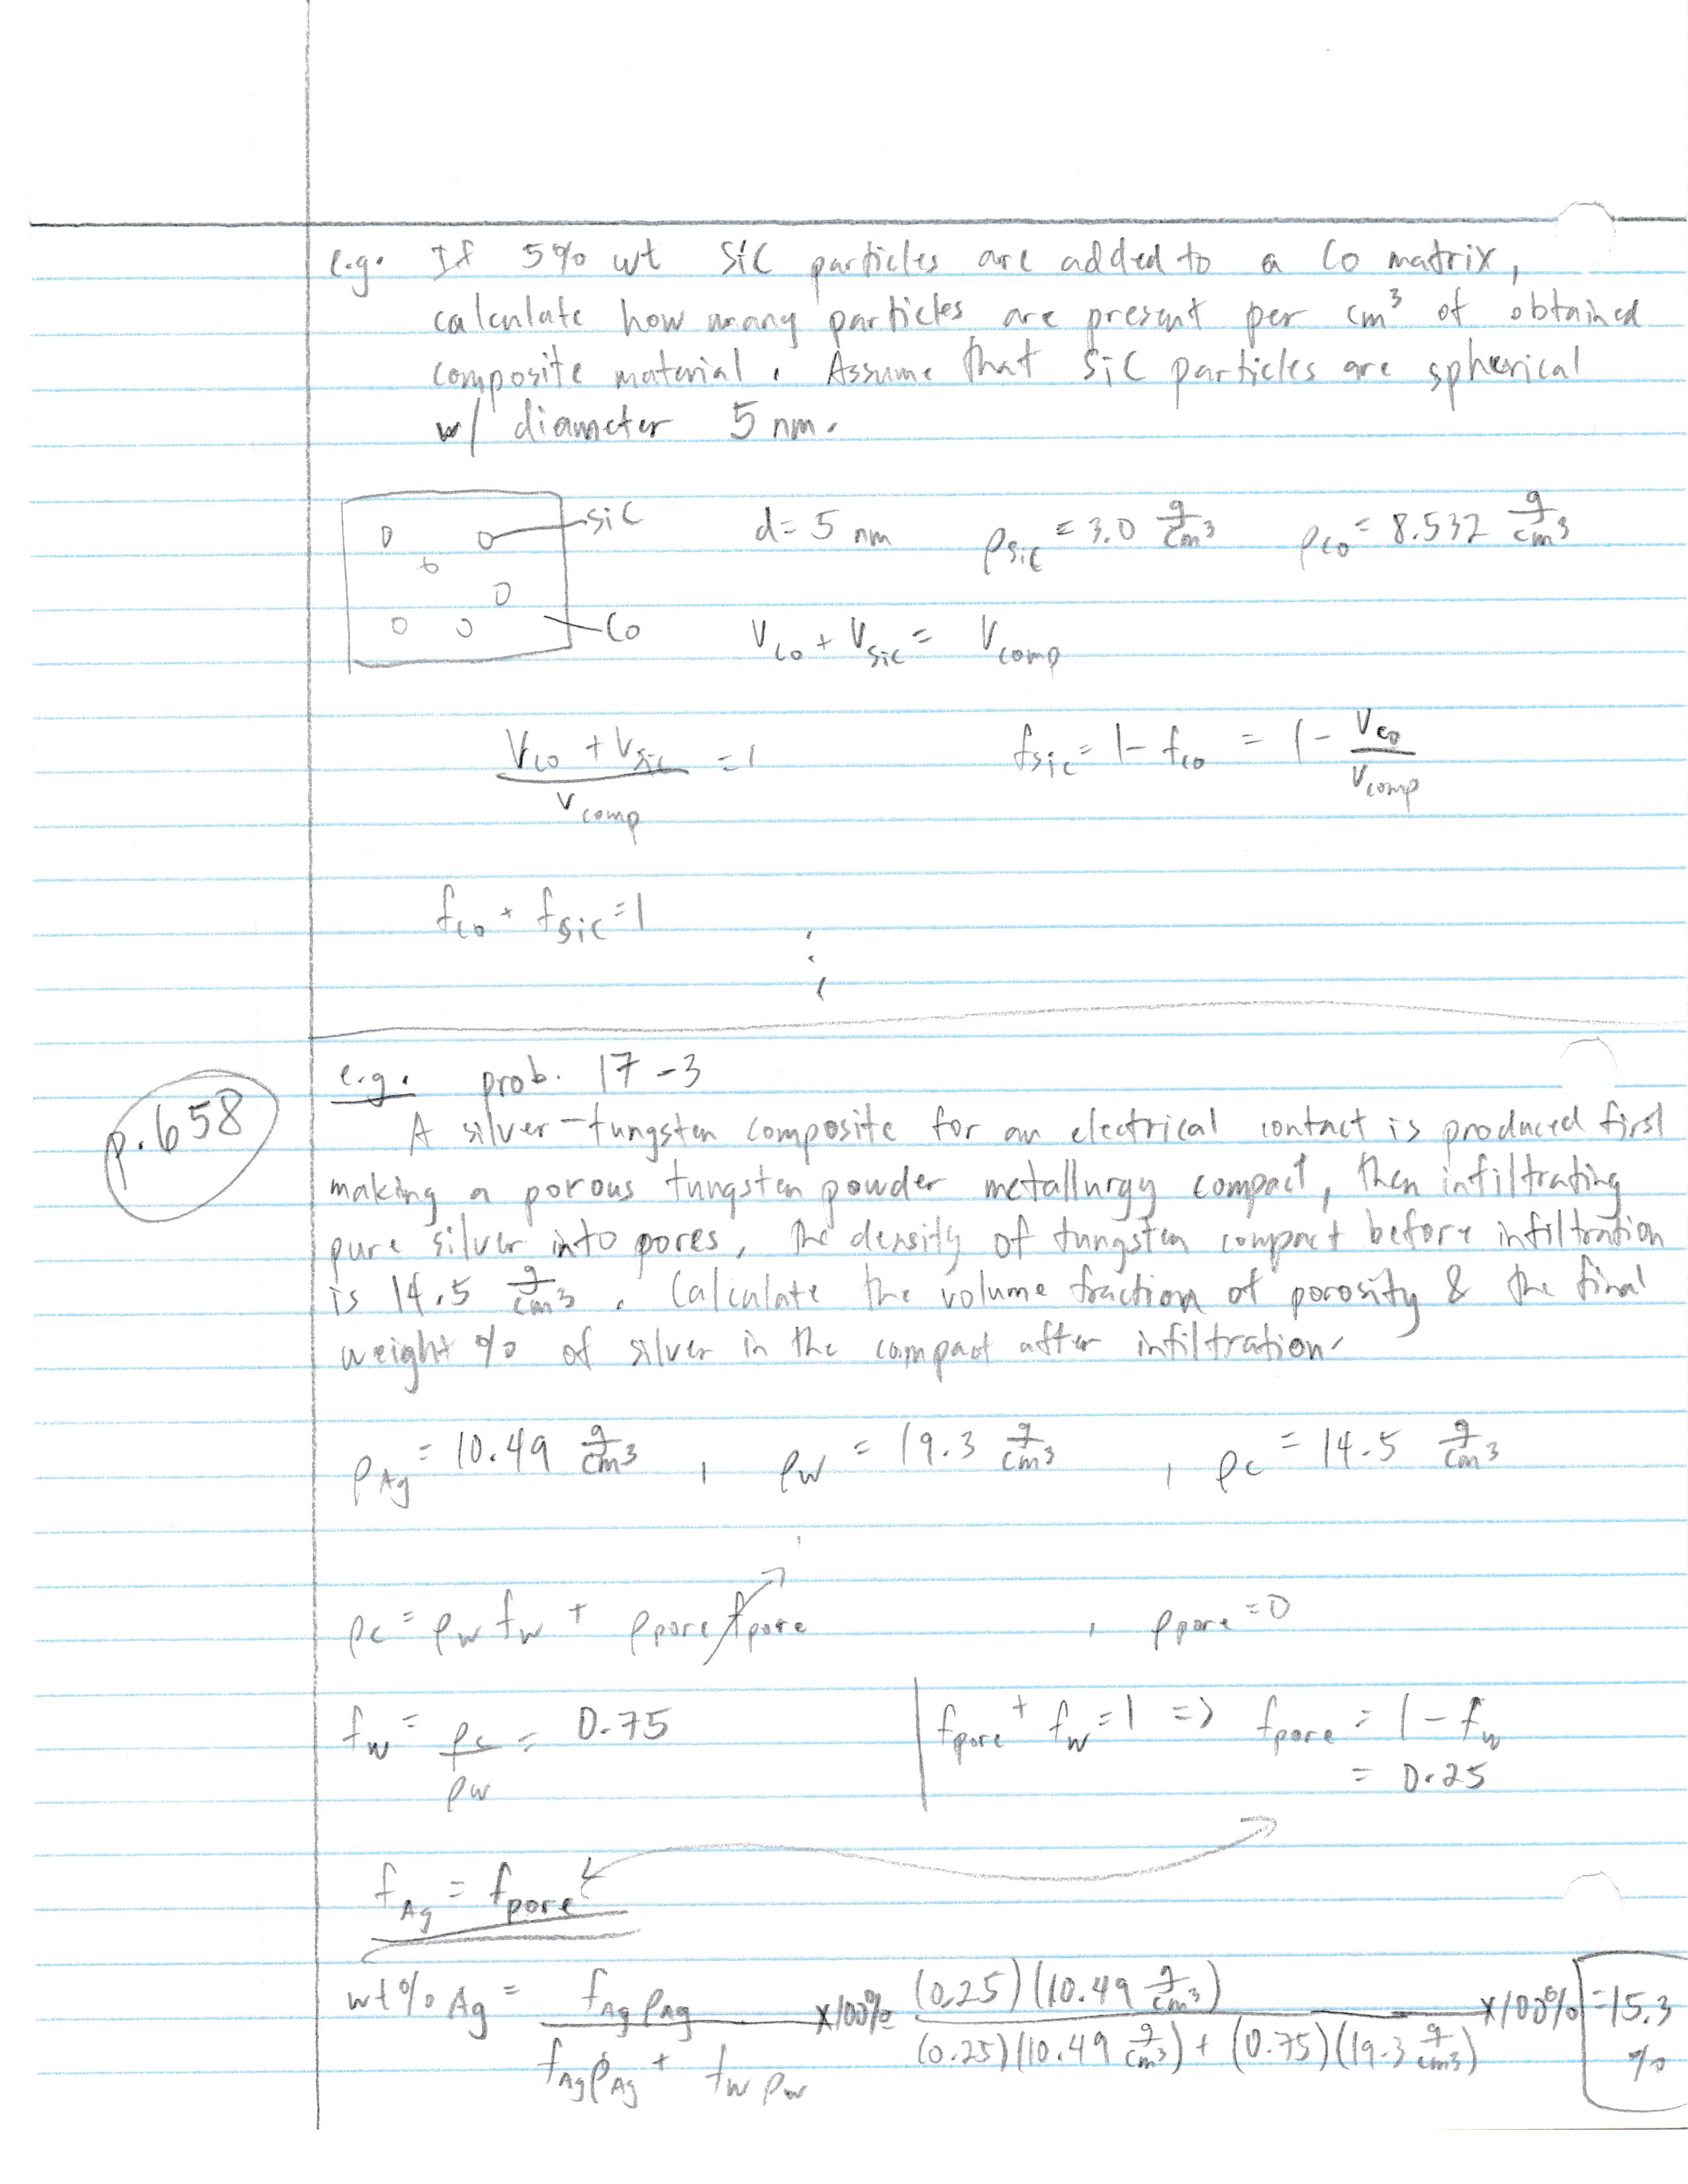 e.g. If 5% wt SiC particles are added to a Co matrix,
calculate how many particles are present per cm³ of obtained
composite material. Assume that SiC particles are spherical
w/ diameter 5 nm.
SiC d = 5 nm ρ_SiC = 3.0 g/cm³ ρ_Co = 8.532 g/cm³
Co V_Co + V_SiC = V_comp
(V_Co + V_SiC)/V_comp = 1 f_SiC = 1 - f_Co = 1 - V_Co/V_comp
f_Co + f_SiC = 1
⋮
e.g. prob. 17-3
p.658
A silver-tungsten composite for an electrical contact is produced first
making a porous tungsten powder metallurgy compact, then infiltrating
pure silver into pores, the density of tungsten compact before infiltration
is 14.5 g/cm³. Calculate the volume fraction of porosity & the final
weight % of silver in the compact after infiltration.
ρ_Ag = 10.49 g/cm³, ρ_W = 19.3 g/cm³, ρ_c = 14.5 g/cm³
ρ_c = ρ_W f_W + ρ_pore f_pore , ρ_pore = 0
f_W = ρ_c/ρ_W = 0.75 f_pore + f_W = 1 => f_pore = 1 - f_W
= 0.25
f_Ag = f_pore
wt% Ag = f_Ag ρ_Ag/(f_Ag ρ_Ag + f_W ρ_W) x100% = (0.25)(10.49 g/cm³)/((0.25)(10.49 g/cm³) + (0.75)(19.3 g/cm³)) x100% = 15.3
%